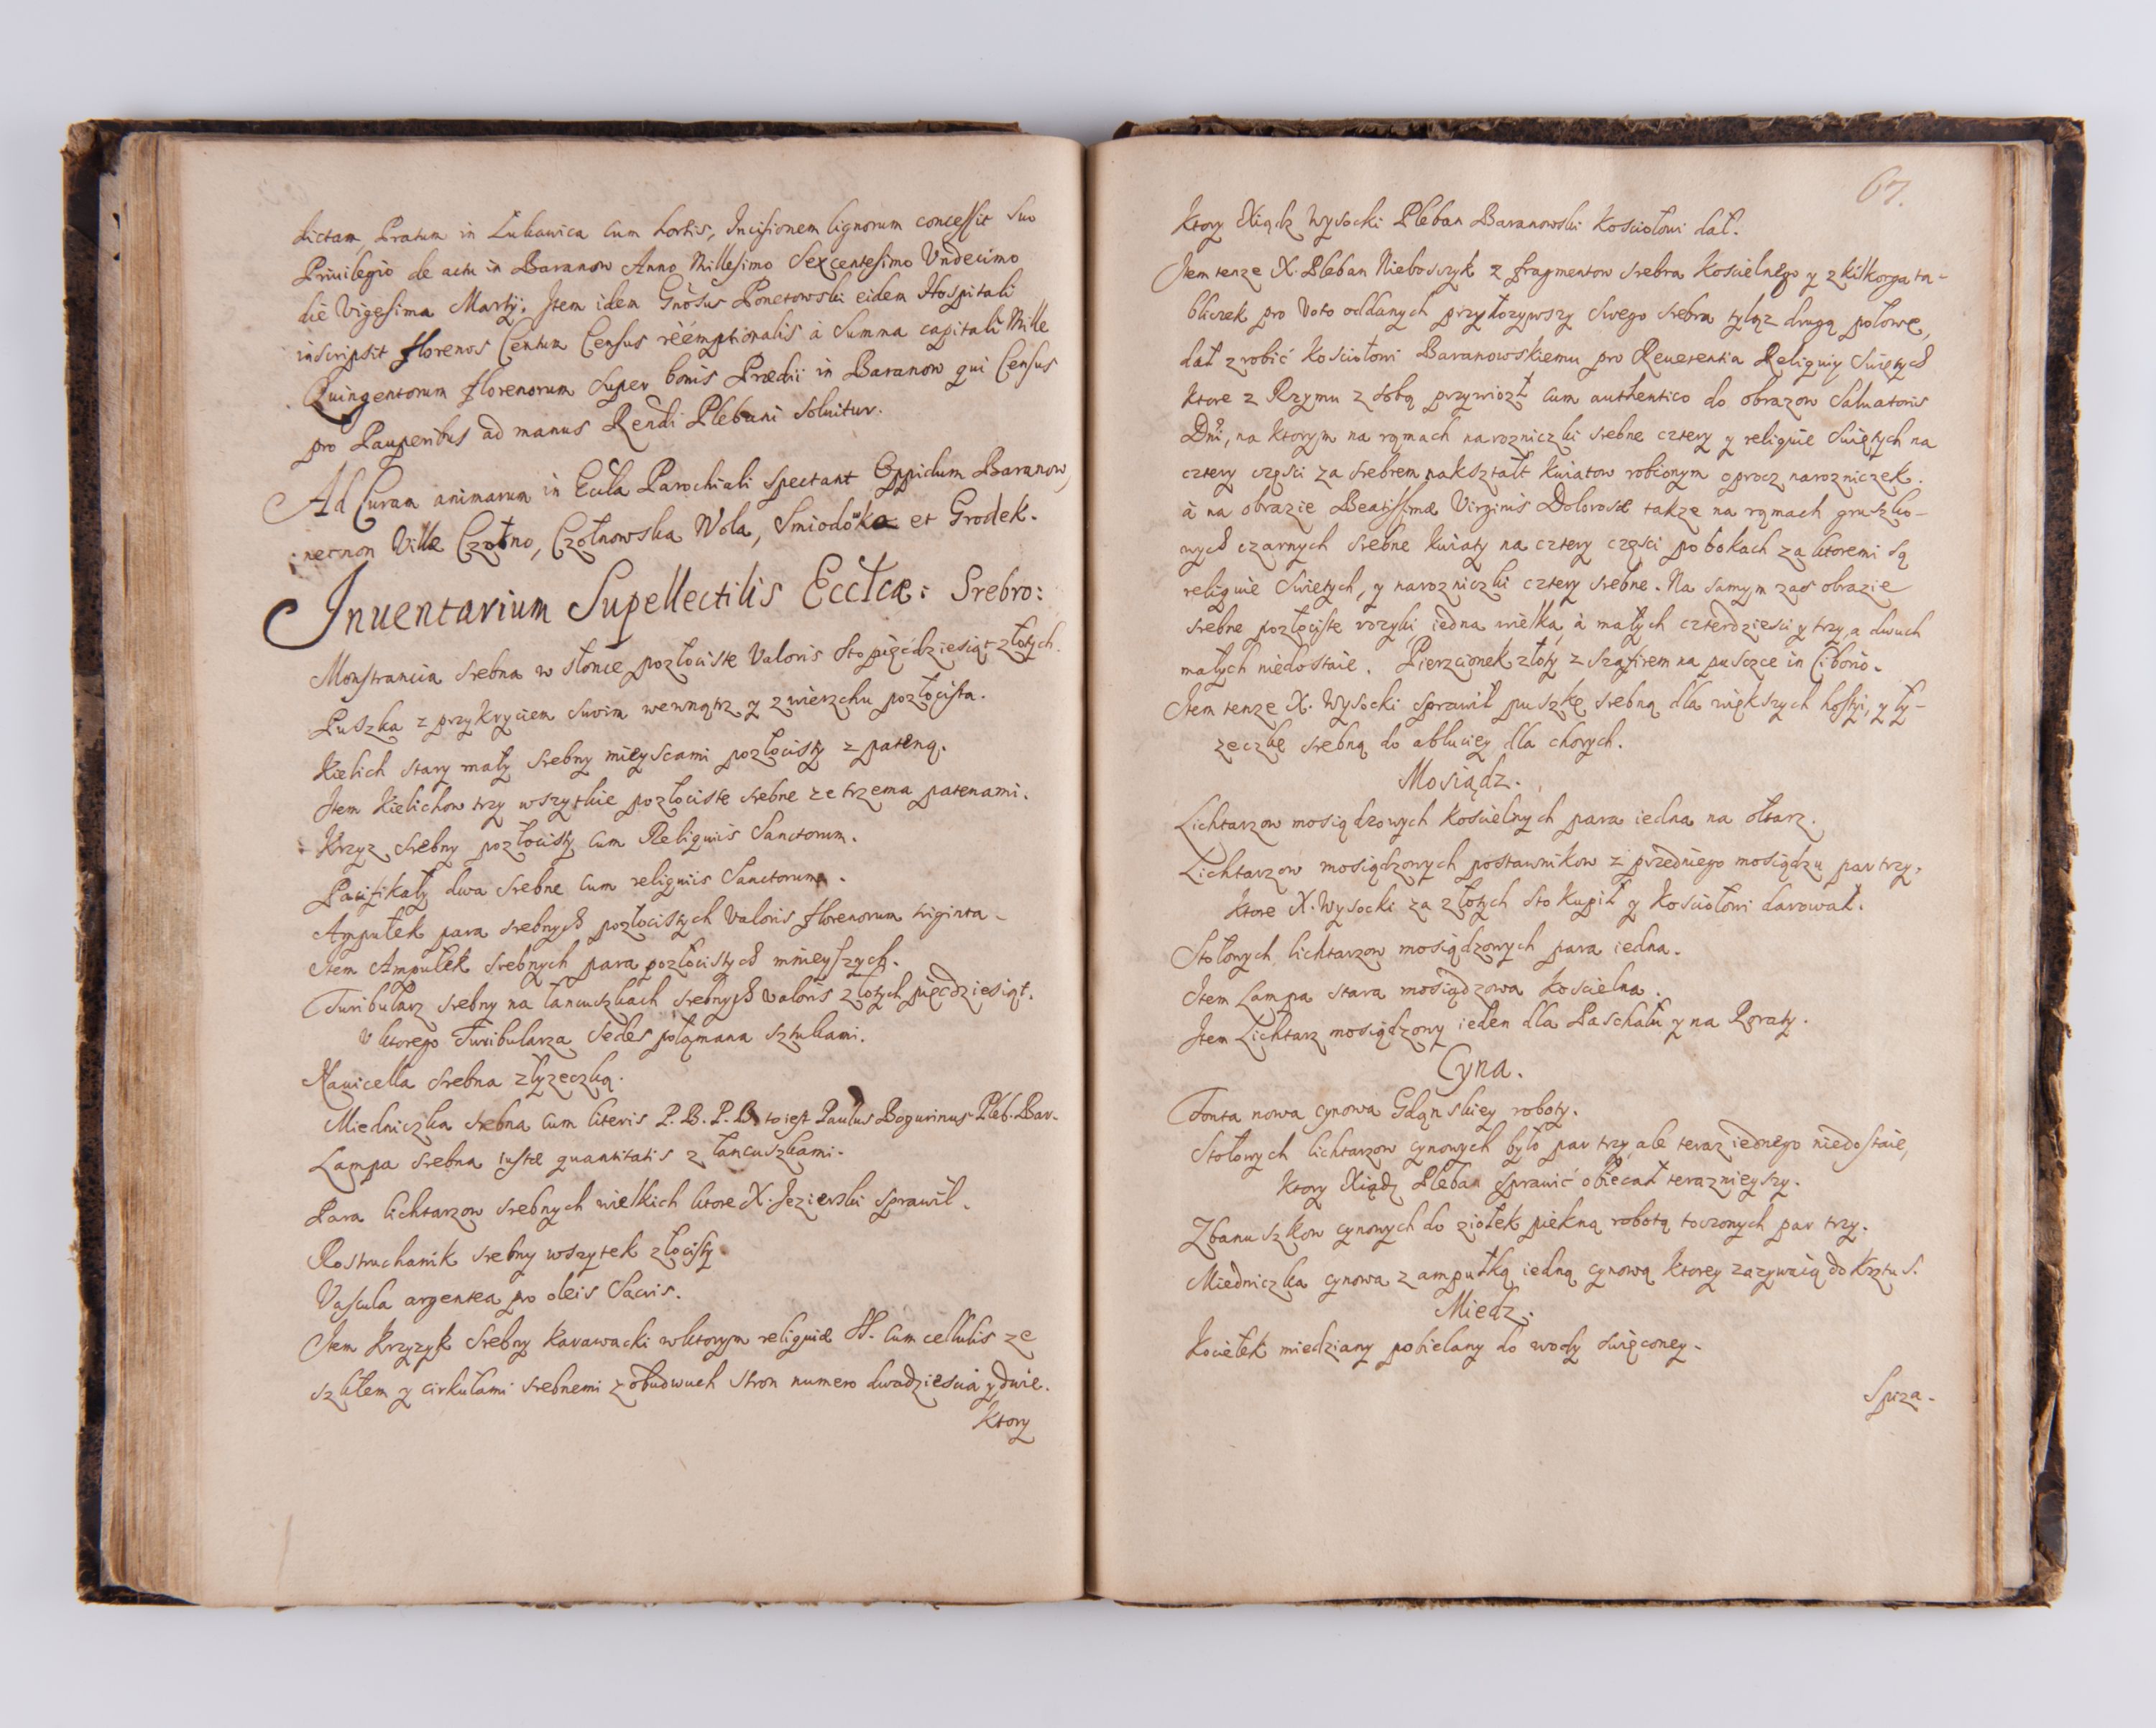 dictam, Pratum in Lukawica cum hortis, Incisionem lignorum concessit suo
Priuilegio de actu in Baranow Anno Millesimo Sexcentesimo Vndecimo
die Vigesima Martij. Item idem Gnosus Ponetowski eidem Hospitali
inscripsit florenos Centum Census reemptionalis à Summa capitali Mille
Quingentorum florenorum super bonis Prædii in Baranow qui Census
pro Pauperibus ad manus Rendi Plebani soluitur.
Ad Curam animarum in Eccla Parochiali spectant Oppidum Baranow,
necnon Villæ Czołno, Czołnowska Wola, Smiodowka et Grodek.
Inuentarium Supellectilis Ecclæ: Srebro:
Monstrancia srebna w słonce pozłociste Valoris sto pięćdziesiąt złotych.
Puszka z przykryciem swoim wewnątrz y zwierzchu pozłocista.
Kielich stary mały srebny mieyscami pozłocisty z pateną.
Item Kielichow trzy wszytkie pozłociste srebne ze trzema patenami.
Krzyz srebny pozłocisty cum Reliquiis Sanctorum.
Pacifikały dwa srebne cum reliquiis Sanctorum.
Ampułek para srebnych pozłocistych Valoris florenorum triginta.
Item Ampułek srebnych para pozłocistych mnieyszych.
Turibularz srebny na łancuszkach srebnych valoris złotych pięćdziesiąt.
v ktorego Turibularza sedes połamana sztukami.
Nauicella srebna z łyzeczką.
Miedniczka srebna cum literis P. B. P. B. to iest Paulus Bogurinus Pleb. Bar.
Lampa srebna iustæ quantitatis z łancuszkami.
Para lichtarzow srebnych wielkich ktore X. Jezierski sprawił.
Rostruchanik srebny wszytek złocisty
Vascula argentea pro oleis Sacris.
Item Krzyzyk srebny karawacki w ktorym reliquiæ SS. cum cellulis ze
szkłem y cirkułami srebnemi z obudwuch stron numero dwadziescia y dwie.
Ktory
67.
Ktory Xiądz Wysocki Pleban Baranowski Kosciołowi dał.
Item tenze X. Pleban Nieboszczyk z fragmentow srebra Koscielnego y z kilkorga ta-
bliczek pro Voto oddanych przyłozywszy swego srebra tyląz drugą połowę,
dał zrobić Kosciołowi Baranowskiemu pro Reuerentia Reliquiy swiętych
ktore z Rzymu z sobą przywiozł cum authentico do obrazow Saluatoris
Dni, na ktorym na rąmach narozniczki srebne cztery y reliquie swiętych na
cztery częsci za srebrem nakształt kwiatow robionym oprocz narozniczek.
à na obrazie Beatissimæ Virginis Dolorosæ takze na rąmach gruszko-
wych czarnych srebne kwiaty na cztery częsci po bokach za ktoremi są
reliquie swietych, y narozniczki cztery srebne. Na samym zas obrazie
srebne pozłociste rozyki, iedna wielka, à małych czterdziesci y trzy, a dwuch
małych niedostaie. Pierzcionek złoty z szafirem na puszce in Ciborio.
Item tenze X. Wysocki sprawił puszkę srebną dla większych hostyi, y ły-
zeczkę srebną do abluciey dla chorych.
Mosiądz.
Lichtarzow mosiądzowych koscielnych para iedna na ołtarz.
Lichtarzow mosiądzowych postawnikow z przedniego mosiądzu par trzy,
ktore X. Wysocki za złotych sto kupił y kosciołowi darował.
Stołowych lichtarzow mosiądzowych para iedna.
Item Lampa stara mosiądzowa koscielna.
Item Lichtarz mosiądzowy ieden dla Paschału y na Roraty.
Cyna.
Fonta nowa cynowa Gdąnskiey roboty.
Stołowych lichtarzow cynowych było par trzy, ale teraz iednego niedostaie,
ktory Xiądz Pleban sprawić obiecał teraznieyszy.
Zbanuszkow cynowych do ziołek piekną robotą toczonych par trzy.
Miedniczka cynowa z ampułką iedną cynową ktorey zazywaią do Krztu S.
Miedz.
Kociełek miedziany pobielany do wody swięconey.
Spiza.